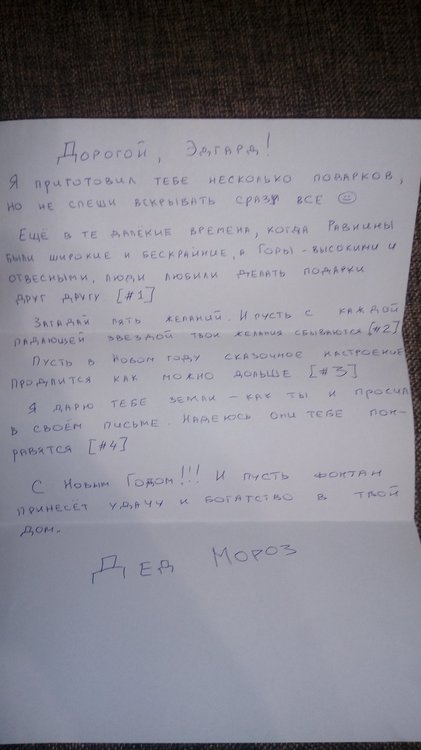 Дорогой, Эдгард!
Я приготовил тебе несколько подарков,
но не спеши вскрывать сразу все ☺
Ещё в те далёкие времена, когда Равнины
были широкие и бескрайние, а Горы - высокими и
отвесными, люди любили делать подарки
друг другу. [#1]
Загадай пять желаний. И пусть с каждой
падающей звездой твои желания сбываются [#2]
Пусть в новом году сказочное настроение
продлится как можно дольше [#3]
Я дарю тебе земли - как ты и просил
в своём письме. Надеюсь они тебе пон-
равятся [#4]
С Новым Годом!!! И пусть фонтан
принесёт удачу и богатство в твой
дом.
Дед Мороз